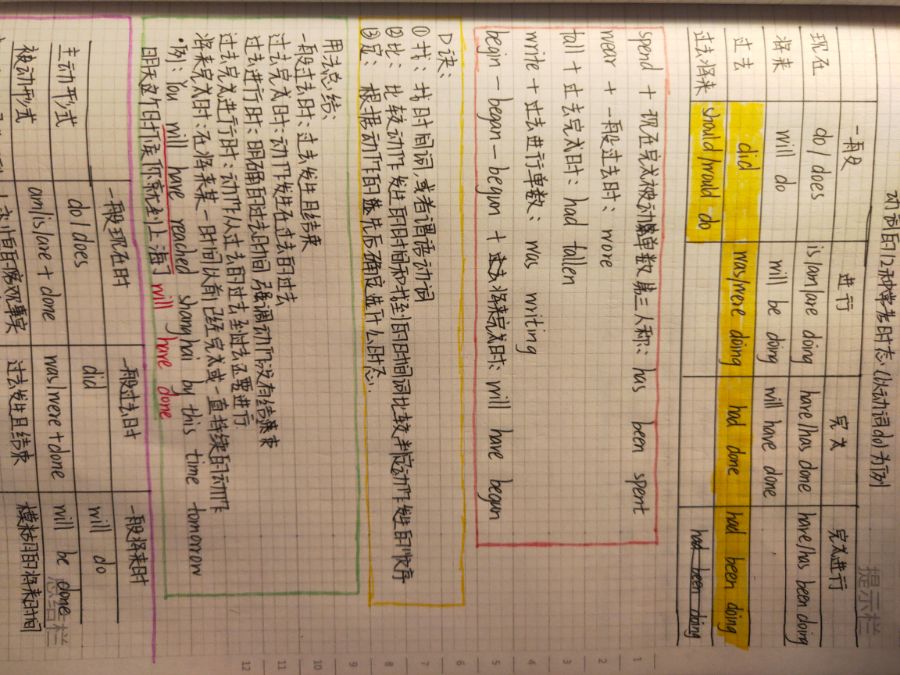 动词的12种常考时态:(以动词do为例)
提示栏
一般 进行 完成 完成进行
现在 do/does is/am/are doing have/has done have/has been doing
将来 will do will be doing will have done
过去 did was/were doing had done had been doing
过去将来 should/would do had been doing
spend + 现在完成被动单数第三人称: has been spent
wear + 一般过去时: wore
fall + 过去完成时: had fallen
write + 过去进行单数: was writing
begin - began - begun + 将来完成时: will have begun
口诀:
①找: 找时间词,或者谓语动词
②比: 比较动作发生的时间和找到的时间词比较判定动作发生的顺序
③定: 根据动作的先后确定是什么时态.
用法总结:
一般过去时: 过去发生且结束
过去完成时: 动作发生在过去的过去
过去进行时: 明确的过去时间强调动作没有结束
过去完成进行时: 动作从过去的过去到过去还要进行
将来完成时: 在将来某一时间以前已经完成或一直持续的动作
·例: You will have reached shanghai by this time tomorrow
明天这个时候你就到上海了 will have done
一般现在时 一般过去时 一般将来时
主动形式 do/does did will do
被动形式 am/is/are + done was/were + done will be done
总结栏
客观事实 过去发生且结束 模糊的将来时间
1
2
3
4
5
6
7
8
9
10
11
12